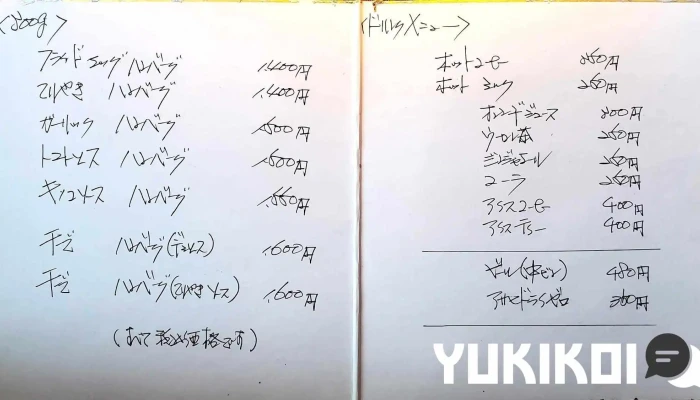 <200g>
ハンバーグ 1.400円
てりやき ハンバーグ 1.400円
ガーリック ハンバーグ 1.500円
トマトソース ハンバーグ 1.500円
キノコソース ハンバーグ 1.550円
チーズ ハンバーグ(デミソース) 1.600円
チーズ ハンバーグ(てりやきソース) 1.600円
(すべて税込価格です)
<ドリンクメニュー>
ホットコーヒー
ホット ミルク
オレンジジュース
ウーロン茶
ジンジャエール
コーラ
アイスコーヒー 400円
アイスティー 400円
ビール(中ビン) 480円
アサヒドライゼロ
YUKIKOI